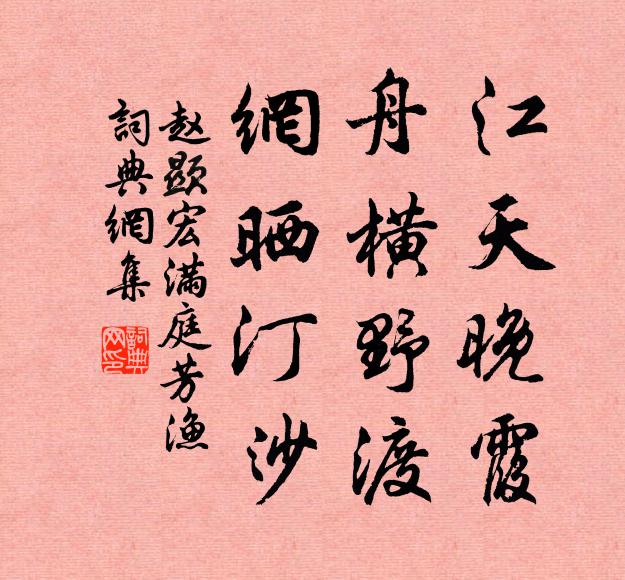 江天晚霞
舟橫野渡
網晒汀沙
赵顯宏满庭芳渔
詞典網集
詞典网印